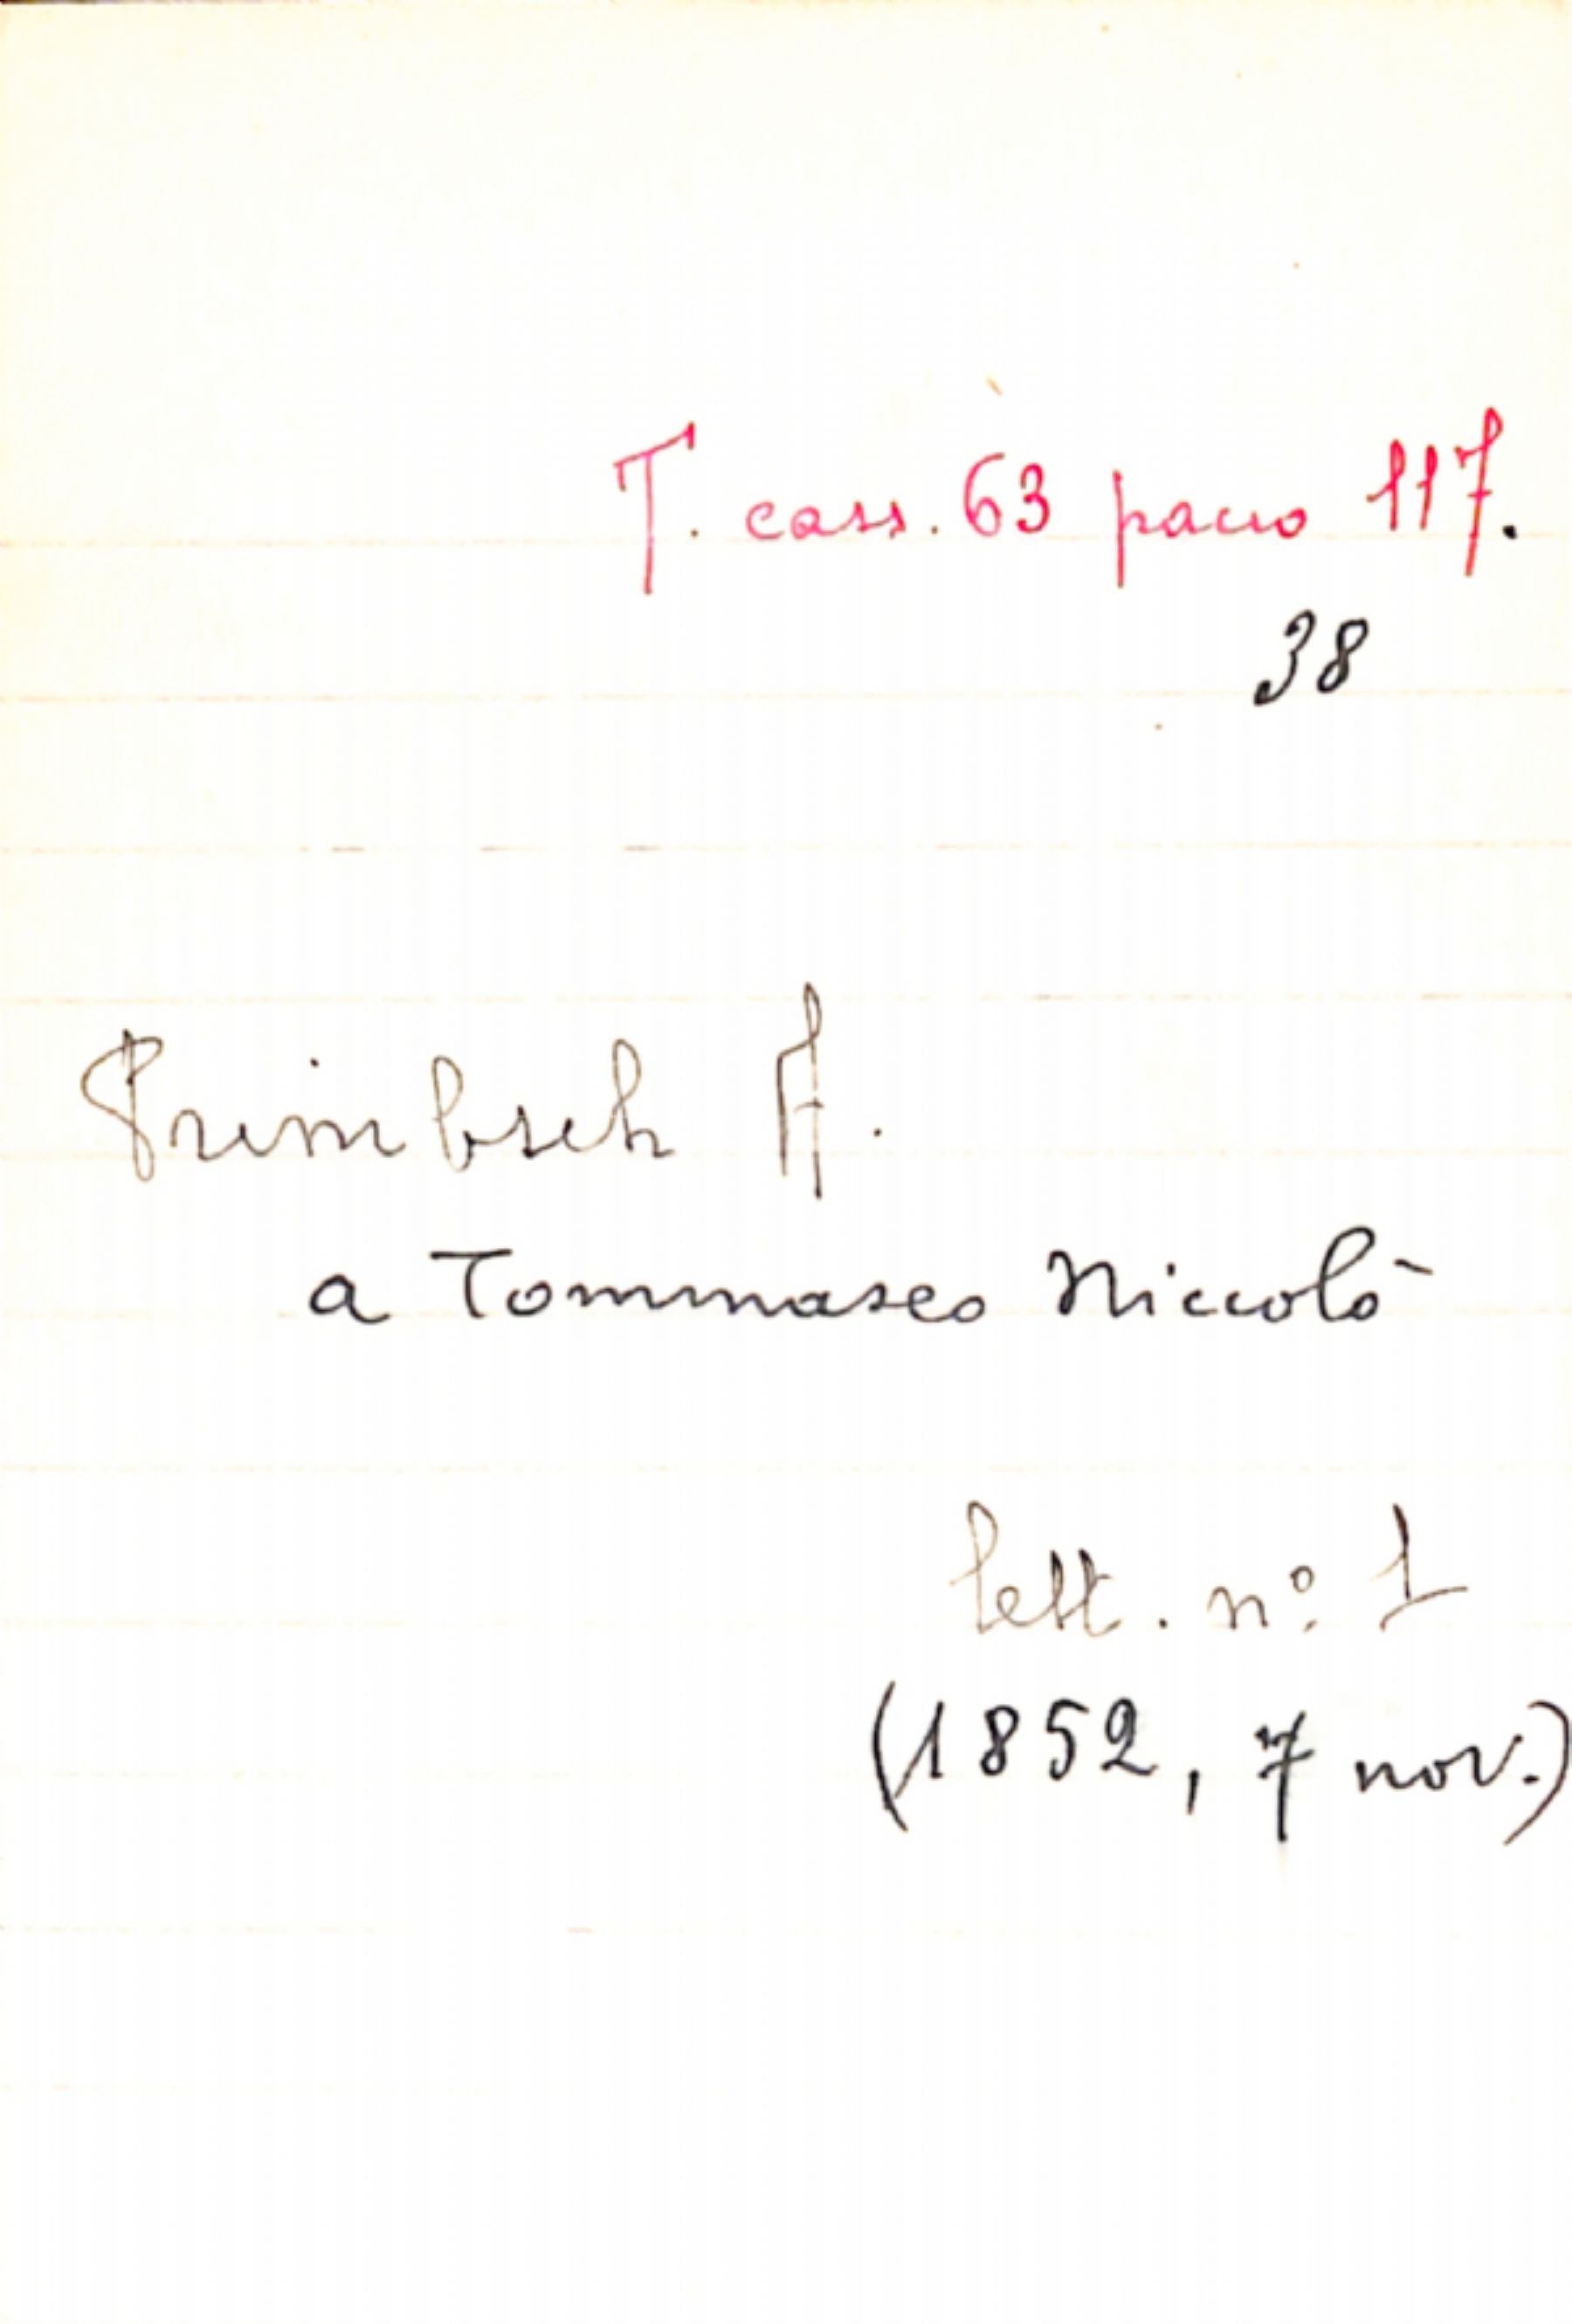 T. cass. 63 pacco 117.
38
Primbsch A.
a Tommaseo Niccolò
lett. n.º 1
(1852, 7 nov.)